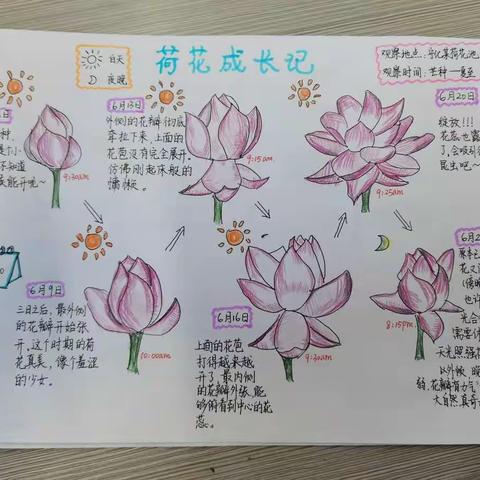 荷花成长记
白天
夜晚
观察地点：宁化某荷花池
观察时间：芒种—夏至
9:30am
6月9日
三日之后，最外侧
的花瓣开始张
开，这个时期的荷
花真美，像个羞涩
的少女。
10:00am
6月13日
外侧的花瓣彻底
牵拉下来，上面的
花苞没有完全展开。
仿佛刚起床般的
慵懒。
9:15am
6月16日
上面的花苞
打得越来越
开了，最内侧
的花瓣外张，能
够俯看到中心的花
蕊。
9:30am
6月20日
绽放!!!
花蕊也露
了，会吸引
昆虫吧~
9:25am
8:15pm
也许
光会
需要休
天光照强
大自然真奇